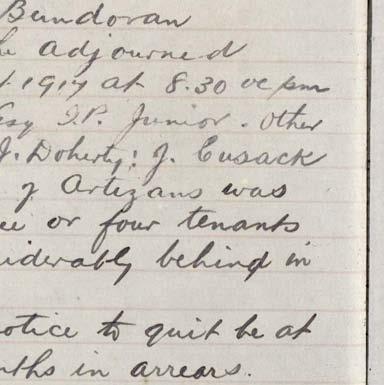 Bundoran
he adjourned
1917 at 8.30 oc pm
Esq J.P. Junior. Other
J. Doherty; J. Cusack
of Artizans was
ee or four tenants
siderably behind in
otice to quit be at
nths in arrears.